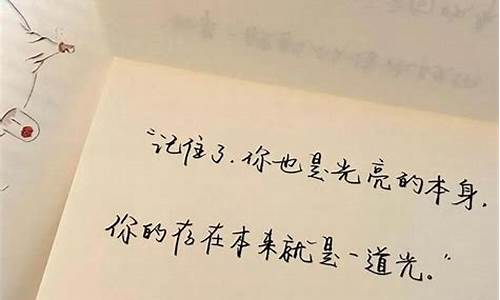 “记住了.你也是光亮的本身.
你的存在本来就是一道光。”